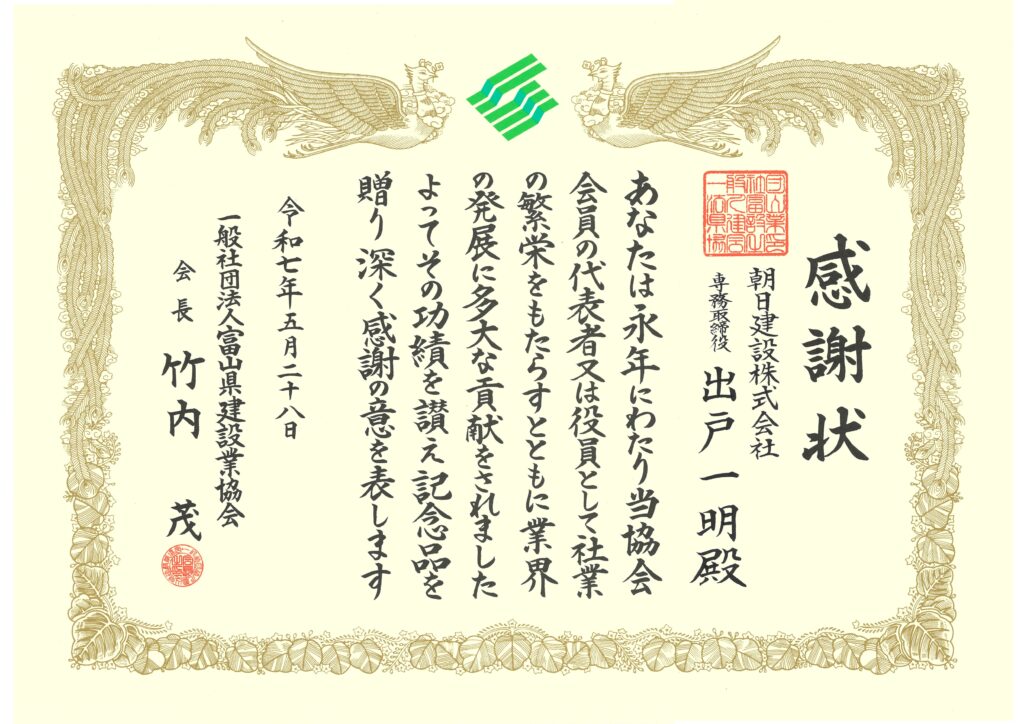 感謝状
朝日建設株式会社
専務取締役 出戸一明殿
あなたは永年にわたり当協会
会員の代表者又は役員として社業
の繁栄をもたらすとともに業界
の発展に多大な貢献をされました
よってその功績を讃え記念品を
贈り深く感謝の意を表します
令和七年五月二十八日
一般社団法人富山県建設業協会
会長 竹内 茂